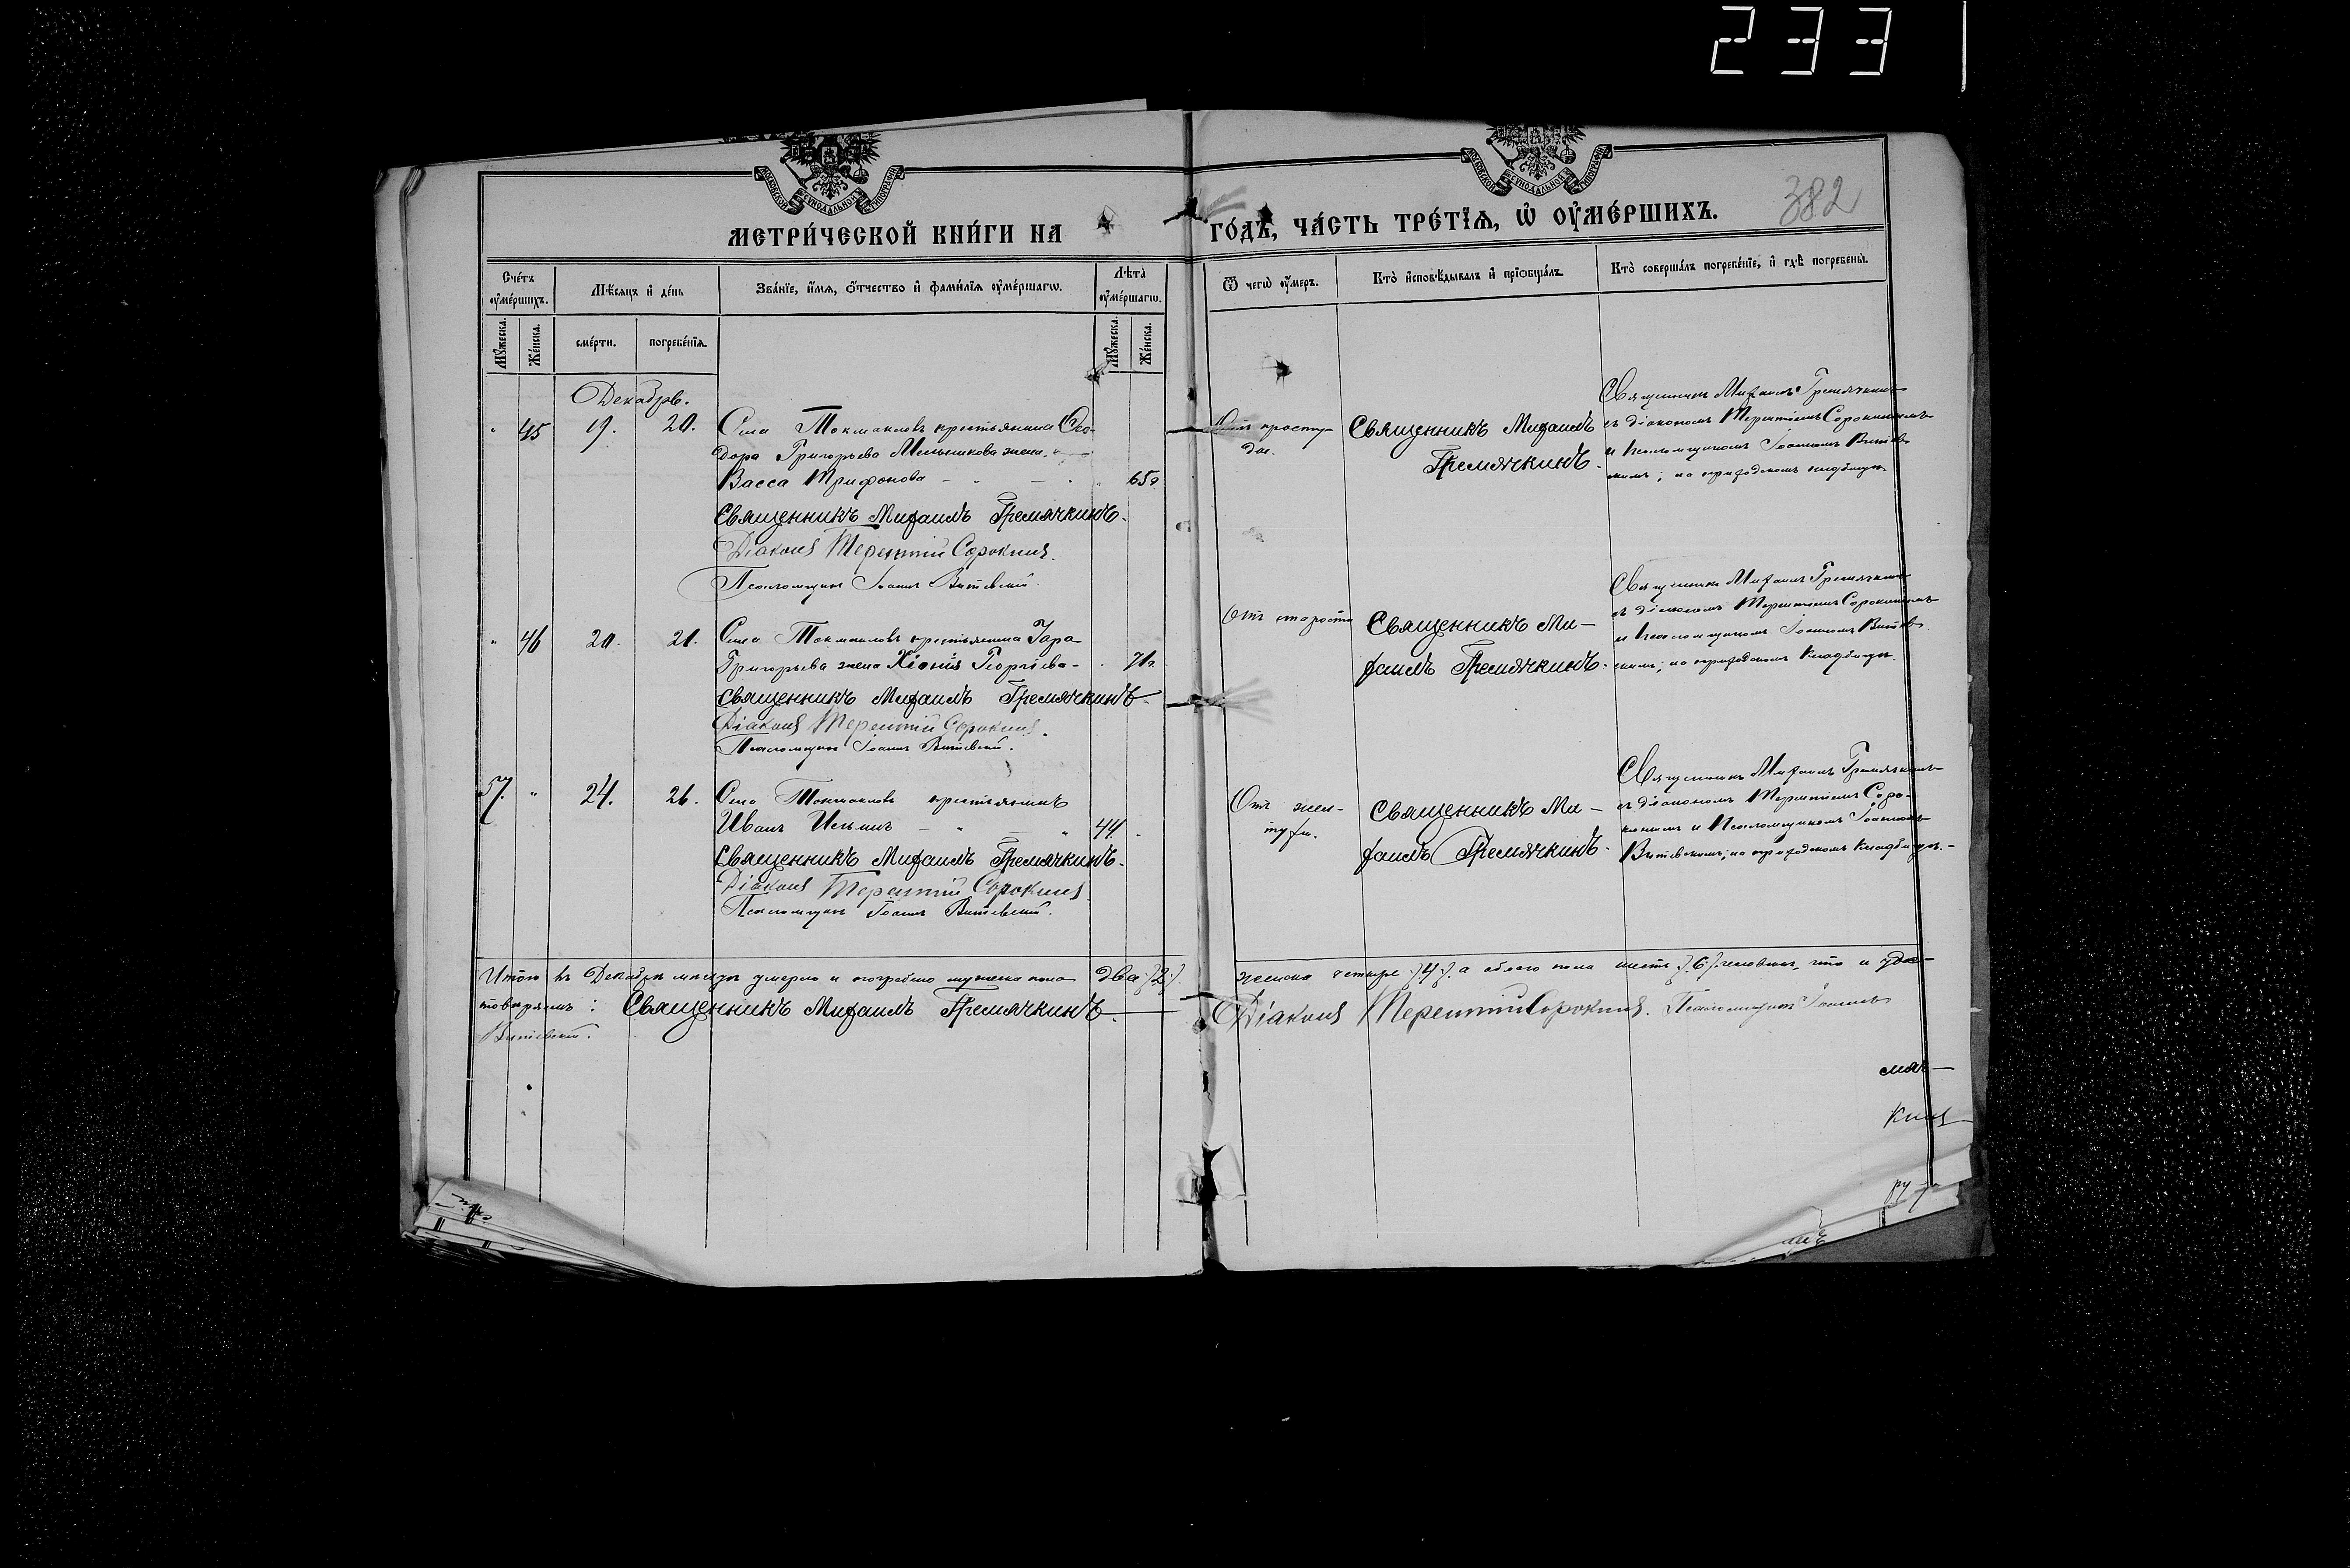 233
МОСКОВСКОЙ СѴНОДАЛЬНОЙ ТИПОГРАФІИ
МОСКОВСКОЙ СѴНОДАЛЬНОЙ ТИПОГРАФІИ
МЕТРИ́ЧЕСКОЙ КНИ́ГИ НА
ГО́ДЪ, ЧА́СТЬ ТРЕ́ТЇѦ, Ѡ҆ ОУ҆МЕ́РШИХЪ.
382
Сче́тъ оу҆ме́ршихъ.
Мꙋ́жеска.
Же́нска.
Мѣ́сѧцъ и҆ де́нь
сме́рти.
погребе́нїѧ.
Зва́нїе, и҆́мѧ, ѻ҆́тчество и҆ фами́лїѧ оу҆ме́ршагѡ.
Лѣ́та оу҆ме́ршагѡ.
Мꙋ́жеска.
Же́нска.
Ѿ чегѡ̀ оу҆́меръ.
Кто̀ и҆сповѣ́дывалъ и҆ прїѡбща́лъ.
Кто̀ соверша́лъ погребе́нїе, и҆ гдѣ̀ погребены̀.
Декабрь.
" 45 19. 20. Села Токмаклов крестьянина Ѳео-
дора Григорьева Мельникова жена
Васса Трифонова 65
Священникъ Михаилъ Гремячкинъ.
Діаконъ Терентій Сорокинъ.
Псаломщикъ Іоаннъ Витевскій.
Отъ просту-
ды.
Священникъ Михаилъ
Гремячкинъ.
Священникъ Михаилъ Гремячкинъ
съ діакономъ Терентіемъ Сорокинымъ
и псаломщикомъ Іоанномъ Витев-
скимъ; на приходскомъ кладбищѣ.
" 46 20. 21. Села Токмаклов крестьянина
Григорьева жена Хіонія Георгіева 71
Священникъ Михаилъ Гремячкинъ.
Діаконъ Терентій Сорокинъ.
Псаломщикъ Іоаннъ Витевскій.
Отъ старости
Священникъ Ми-
хаилъ Гремячкинъ.
Священникъ Михаилъ Гремячкинъ
съ діакономъ Терентіемъ Сорокинымъ
и псаломщикомъ Іоанномъ Витев-
скимъ; на приходскомъ кладбищѣ.
57. " 24. 26. Села Токмаклов крестьянинъ
Иванъ Ильинъ 44.
Священникъ Михаилъ Гремячкинъ.
Діаконъ Терентій Сорокинъ
Псаломщикъ Іоаннъ Витевскій.
Отъ жел-
тухи.
Священникъ Ми-
хаилъ Гремячкинъ.
Священникъ Михаилъ Гремячкинъ
съ діакономъ Терентіемъ Соро-
кинымъ и Псаломщикомъ Іоанномъ
Витевскимъ; на приходскомъ кладбищѣ.
Итого въ Декабрѣ мѣсяцѣ умерло и погребено мужеска пола два /2/.
женска четыре /4/. а обоего пола шесть /6/ человѣкъ, что и удос-
товѣряемъ: Священникъ Михаилъ Гремячкинъ.
Діаконъ Терентій Сорокинъ. Псаломщикъ Іоаннъ
Витевскій.
мяч
кинъ
ру